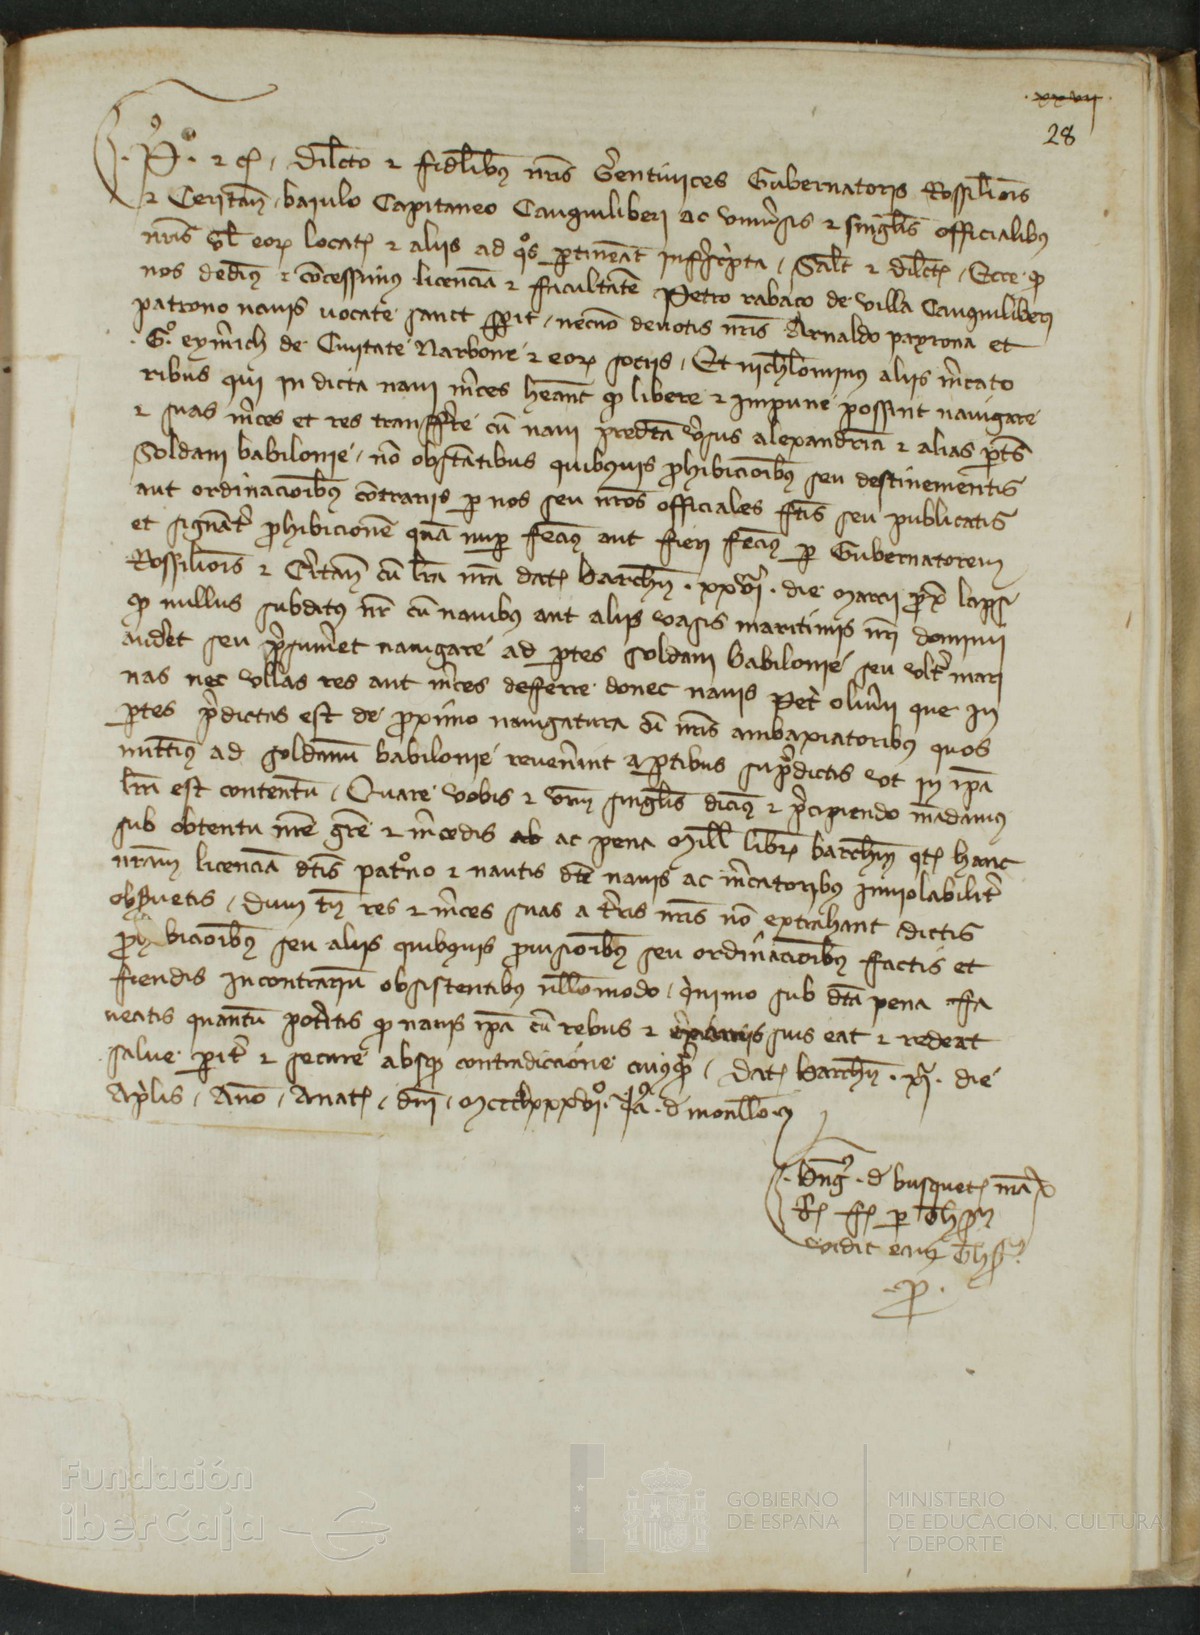 ·xxvii·
28
·P⁹· ⁊ c̄. Dilecto ⁊ fidelibus nr̄is Gerentivices Gubernatoris Rossilionis
⁊ Ceritan̄, baiulo Capitaneo Cauquiliberi ac universis ⁊ singulis officialibus
nr̄is vel eorum locat̄ ⁊ aliis ad quos pertineant infrascripta, Salt̄ ⁊ dilect̄, Ecce quod
nos dedimus ⁊ concessimus licenciam ⁊ facultatem Petro rabaço de villa Cauquiliberi
patrono navis vocate sanct sperit, necnon devotis nr̄is Arnaldo payrona et
·G⁰· eymerich de Civitate Narbone ⁊ eorum sociis, Et nichilominus aliis mercato
ribus qui in dicta navi merces habeant quod libere ⁊ impune possint navigare
⁊ suas merces et res transferre cum navi predicta versus alexandriam ⁊ alias partes
Soldani babilonie, non obstantibus quibusvis prohibicionibus seu destinementis
aut ordinacionibus contrariis per nos seu nostros officiales factis seu publicatis
et signanter prohibicionem quam nuper fecimus aut fieri fecimus per Gubernatorem
Rossilionis ⁊ Ceritan̄ cum litera nostra dat̄ barchn̄ ·xxvi· die marcii prox̄ lapsi
quod nullus subditus noster cum navibus aut aliis vasis maritimis nr̄i dominii
auderet seu presumeret navigare ad partes soldani babilonie seu ultra mari
nas nec ullas res aut merces defferre donec navis Petri oliverii que in
partes predictas est de proximo navigatura cum nostris ambaxiatoribus quos
mittimus ad soldanum babilonie revenerint a partibus supradictis ut in ipsa
litera est contentum, Quare vobis ⁊ vestrum singulis dicimus ⁊ precipiendo mandamus
sub obtentu nostre gracie ⁊ mercedis ab ac pena mill̄ librarum barchn̄ quatenus hanc
nostram licenciam dictis patrono ⁊ nautis dicte navis ac mercatoribus inviolabiliter
observetis, dum tamen res ⁊ merces suas a terris nostris non extrahant dictis
prohibicionibus seu aliis quibusvis provisionibus seu ordinacionibus factis et
fiendis in contrarium obsistentibus nullomodo, quinimo sub dicta pena ffa
veatis quantum poteritis quod navis ipsa cum rebus ⁊ suis eat ⁊ redeat
salve pariter ⁊ secure absque contradiccione cuiusquam, dat̄ barchn̄ ·xi· die
Aprilis, Anno, Anat̄, dn̄i, mccclxxxvi⁰· Ja· d monllo·
·bn̄g⁹· d busquet̄ mā
R̄ ff̄ p Thesr̄
vidit eam Thesr̄
·p·
Fundación
iberCaja
GOBIERNO
DE ESPAÑA
MINISTERIO
DE EDUCACIÓN, CULTURA
Y DEPORTE